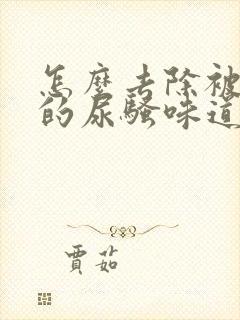 怎麽去除被
的尿騷味道
賈茹